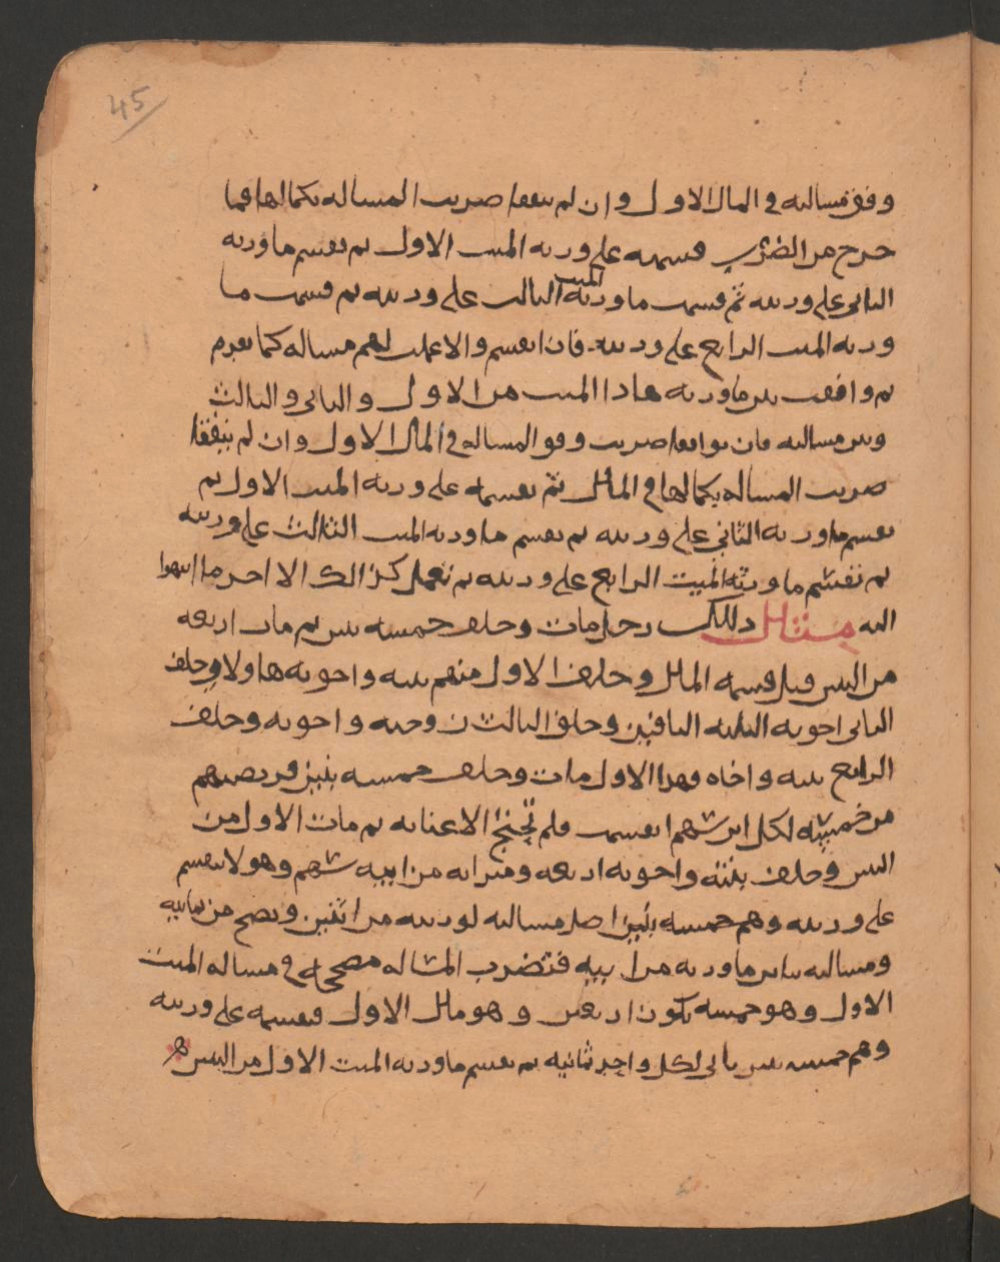 45
وفق مسالته في المال الاول وان لم يتفقا ضربت المساله بكمالها فما
خرج من الضرب قسمته على ورثه الميت الاول ثم تقسم ما ورثه
الثاني على ورثته ثم قسمت ما ورثه الميت الثالث على ورثته ثم قسمت ما
ورثه الميت الرابع على ورثته فان انقسم والا عملت لهم مساله كما تقدم
ثم وافقت بين ما ورثه هاذا الميت من الاول والثاني والثالث
وبين مسالته فان توافقا ضربت وفق المساله في المال الاول وان لم يتفقا
ضربت المساله بكمالها في المال ثم تقسمه على ورثه الميت الاول ثم
تقسم ما ورثه الثاني على ورثته ثم تقسم ما ورثه الميت الثالث على ورثته
ثم تقسم ما ورثه الميت الرابع على ورثته ثم تعمل كذالك الا اخر ما انتهوا
اليه مثال ذلك رجل مات وخلف خمسه بنين ثم مات اربعه
من البنين قبل قسمه المال وخلف الاول منهم بنته واخوته هاولا وخلف
الثاني اخوته الثلثه الباقين وخلف الثالث زوجته واخوته وخلف
الرابع بنته واخاه فهذا الاول مات وخلف خمسه بنين فريضتهم
من خمسه لكل ابن سهم انقسمت فلم تحتج الا عنايه ثم مات الاول من
البنين وخلف بنته واخوته اربعه وميراثه من ابيه سهم وهو لا ينقسم
على ورثته وهم خمسه بنين اصل مسالته لورثته من اثنين وتصح من ثمانيه
ومسالته تباين ما ورثه من ابيه فتضرب المساله مصححه في مساله الميت
الاول وهو خمسه تكون اربعين وهو مال الاول فتقسمه على ورثته
وهم خمسه بنين ياتي لكل واحد ثمانيه ثم تقسم ما ورثه الميت الاول من البنين